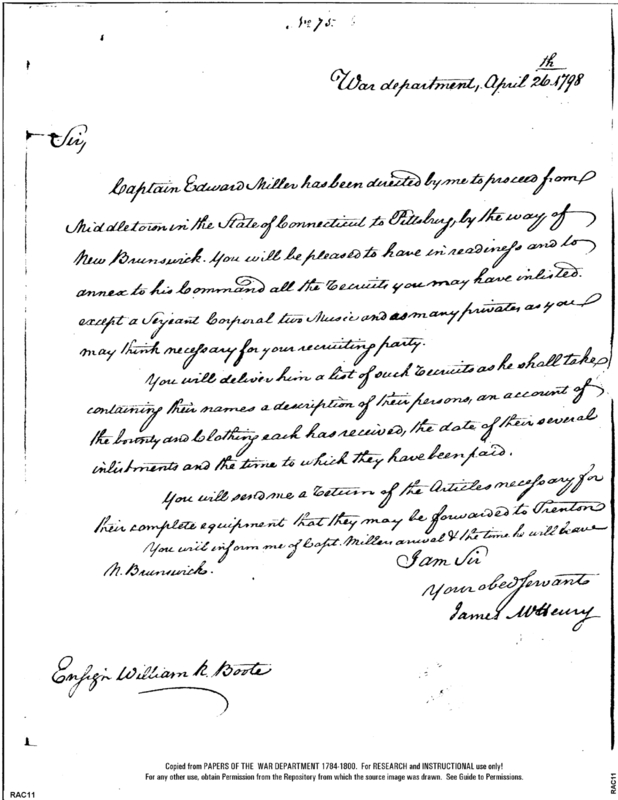 No 75
War department, April 26th 1798
Sir,
Captain Edward Miller has been directed by me to proceed from
Middletown in the State of Connecticut to Pittsburg, by the way of
New Brunswick. You will be pleased to have in readiness and to
annex to his Command all the Recruits you may have inlisted.
except a Serjeant Corporal two Music and as many privates as you
may think necessary for your recruiting party.
You will deliver him a list of such Recruits as he shall take
containing their names a description of their persons, an account of
the bounty and Clothing each has received, the date of their several
inlistments and the time to which they have been paid.
You will send me a Return of the Articles necessary for
their complete equipment that they may be forwarded to Trenton
You will inform me of Capt. Millers arrival & the time he will leave
N. Brunswick.
I am Sir
Your obed servant
James McHenry
Ensign William R. Boote
Copied from PAPERS OF THE WAR DEPARTMENT 1784-1800. For RESEARCH and INSTRUCTIONAL use only!
For any other use, obtain Permission from the Repository from which the source image was drawn. See Guide to Permissions.
RAC11
RAC11